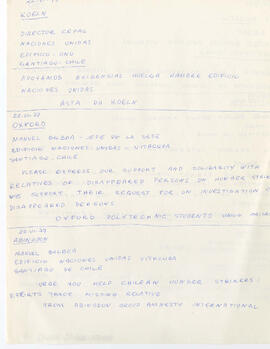 KOELN
DIRECTOR CEPAL
NACIONES UNIDAS
EDIFICIO - ONU
SANTIAGO - CHILE
APOYAMOS EXIGENCIAS HUELGA HAMBRE EDIFICIO
NACIONES UNIDAS
ASTA DU KOELN
OXFORD
MANUEL BALBOA - JEFE DE LA SEDE
EDIFICIO NACIONES UNIDAS - VITACURA
SANTIAGO - CHILE
PLEASE EXPRESS OUR SUPPORT AND SOLIDARITY WITH
RELATIVES OF DISAPPEARED PERSONS ON HUNGER STRIKE
WE SUPPORT THEIR REQUEST FOR AN INVESTIGATION OF
DISAPPEARED PERSONS
OXFORD POLYTECHNIC STUDENTS UNION
ABINGDON
MANUEL BALBOA
EDIFICIO NACIONES UNIDAS VITACURA
SANTIAGO DE CHILE
URGE YOU HELP CHILEAN HUNGER STRIKERS
EFFORTS TRACE MISSING RELATIVE
FROM ABINGDON GROUP AMNESTY INTERNATIONAL